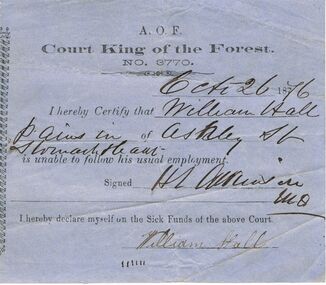 A. O. F.
Court King of the Forest.
NO. 3770.
Oct 26 1876
I hereby Certify that William Hall
Pains in of Ashley St
Stomach &
is unable to follow his usual employment.
Signed
MD
I hereby declare myself on the Sick Funds of the above Court.
William Hall